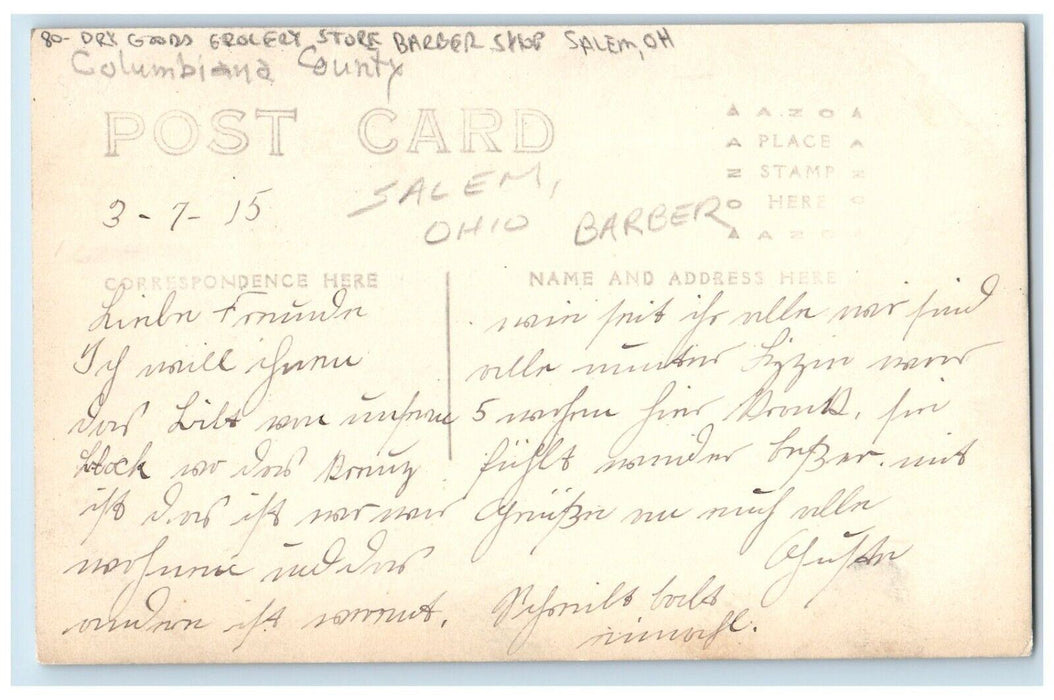 80- DRY GOODS GROCERY STORE BARBER SHOP SALEM, OH
Columbiana County
POST CARD
AZO
PLACE
STAMP
HERE
AZO
3-7-15
SALEM,
OHIO BARBER
CORRESPONDENCE HERE
NAME AND ADDRESS HERE
Liebe Freunde
Ich will ihnen
das Bilt von unsern
block wo das Kreuz
ist das ist wo wir
wohnen und das
andere ist verrent.
wie seit ihr alle wir sind
alle munter Lizzie war
5 wochen hier Krank, sie
fühlt wieder beßer. mit
Grüße an euch alle
Guste
Schreibt balt
einmahl.